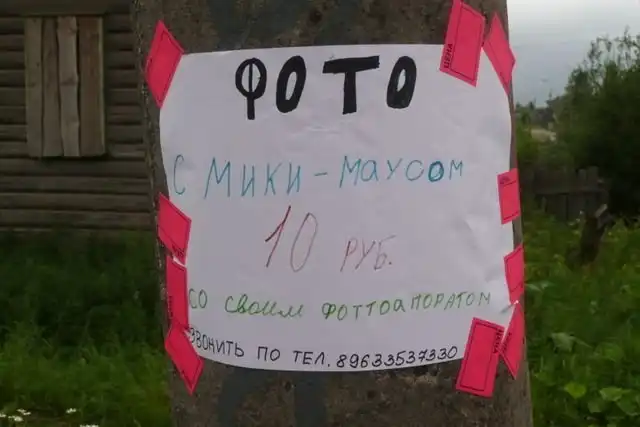 ФОТО
С МИКИ-МАУСОМ
10 РУБ.
СО своим ФОТТОАПОРАТОМ
ЗВОНИТЬ ПО ТЕЛ. 89633537330
ЦЕНА
ЦЕНА